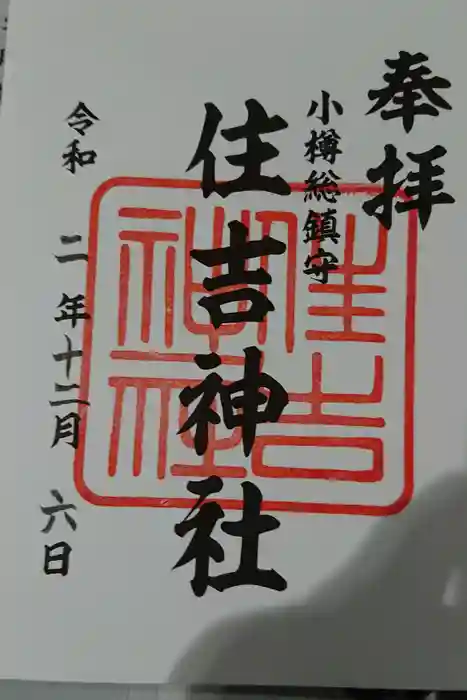 奉拝
小樽総鎮守
住吉神社
住吉神社
令和二年十二月六日